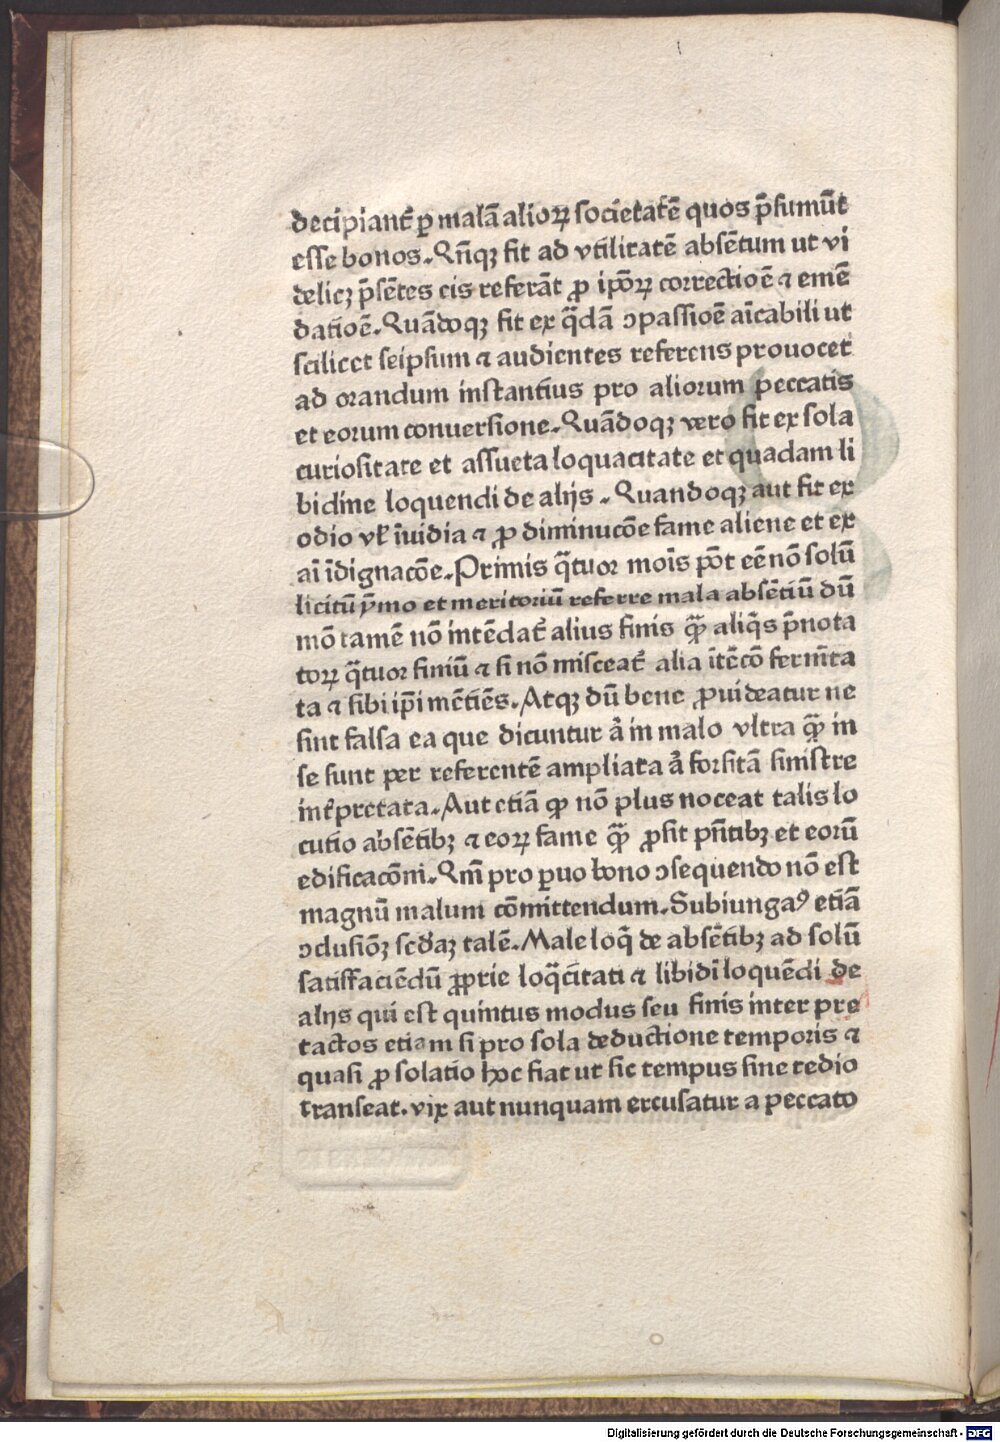 decipiant᷑ ꝑ malā alioꝝ societatē quos p̄sumūt
esse bonos. Qn̄qꝫ fit ad vtilitatē absētum ut vi
delicꝫ p̄sētes eis referāt ꝓ ip̄oꝝ correctioē ⁊ emē
datioē. Quādoqꝫ fit ex q̄dā ↄpassioē aīcabili ut
scilicet seipsum ⁊ audientes referens prouocet
ad orandum instantius pro aliorum peccatis
et eorum conuersione. Quādoqꝫ vero fit ex sola
curiositate et assueta loquacitate et quadam li
bidine loquendi de alijs. Quandoqꝫ aut fit ex
odio vl̕ īuidia ⁊ ꝓ diminucōe fame aliene et ex
aī īdignacōe. Primis q̄tuor mois̄ pōt eē nō solū
licitū ȳmo et meritoriū referre mala absētiū dū
mō tamē nō intēdat᷑ alius finis qꝫ̄ aliq̄s p̄nota
toꝝ q̄tuor finiū ⁊ si nō misceat᷑ alia ītēcō fermēta
ta ⁊ sibi ip̄i mētiēs. Atqꝫ dū bene ꝓuideatur ne
sint falsa ea que dicuntur aͣ in malo vltra qꝫ̄ in
se sunt per referentē ampliata aͣ forsitā sinistre
int᷑pretata. Aut etiā ꝙ nō plus noceat talis lo
cutio absētibꝫ ⁊ eoꝝ fame qꝫ̄ ꝓsit pn̄tibꝫ et eorū
edificacōni. Qm̄ pro ꝑuo bono ↄsequendo nō est
magnū malum cōmittendum. Subiungaꝰ etiā
ↄclusiōꝫ scd̕aꝫ talē. Male loq̄ de absētibꝫ ad solū
satisfaciēdū ꝓprie loq̄citati ⁊ libidī loquēdi de
alijs qui est quintus modus seu finis inter pre
tactos etiam si pro sola deductione temporis ⁊
quasi ꝓ solatio hoc fiat ut sic tempus sine tedio
transeat. vix aut nunquam excusatur a peccato
Digitalisierung gefördert durch die Deutsche Forschungsgemeinschaft - DFG